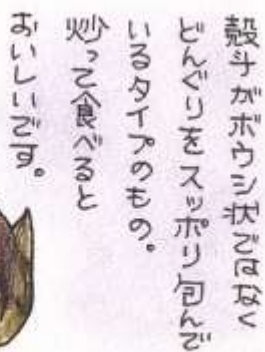 殻斗がボウシ状ではなく
どんぐりをスッポリ包んで
いるタイプのもの。
炒って食べると
おいしいです。